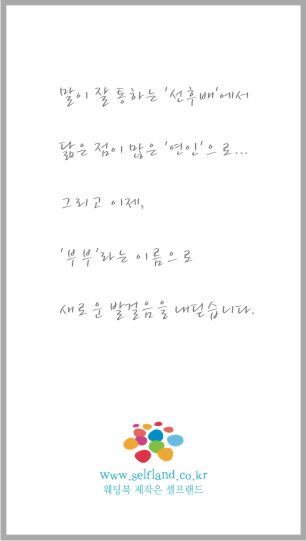 말이 잘 통하는 '선후배'에서
닮은 점이 많은 '연인'으로...
그리고 이제,
'부부'라는 이름으로
새로운 발걸음을 내딛습니다.
www.selfland.co.kr
웨딩북 제작은 셀프랜드